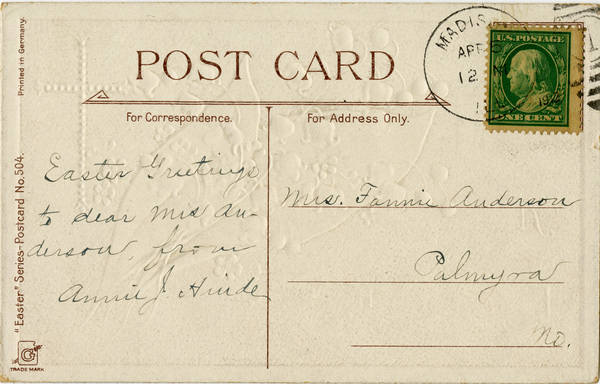 POST CARD
For Correspondence.
For Address Only.
Easter Greetings
to dear Mrs An-
derson, from
Annie J. Hinde
Mrs. Fannie Anderson
Palmyra
Mo.
Printed in Germany.
"Easter" Series-Postcard No. 504.
TRADE MARK
MADIS
APR
12
U.S. POSTAGE
ONE CENT